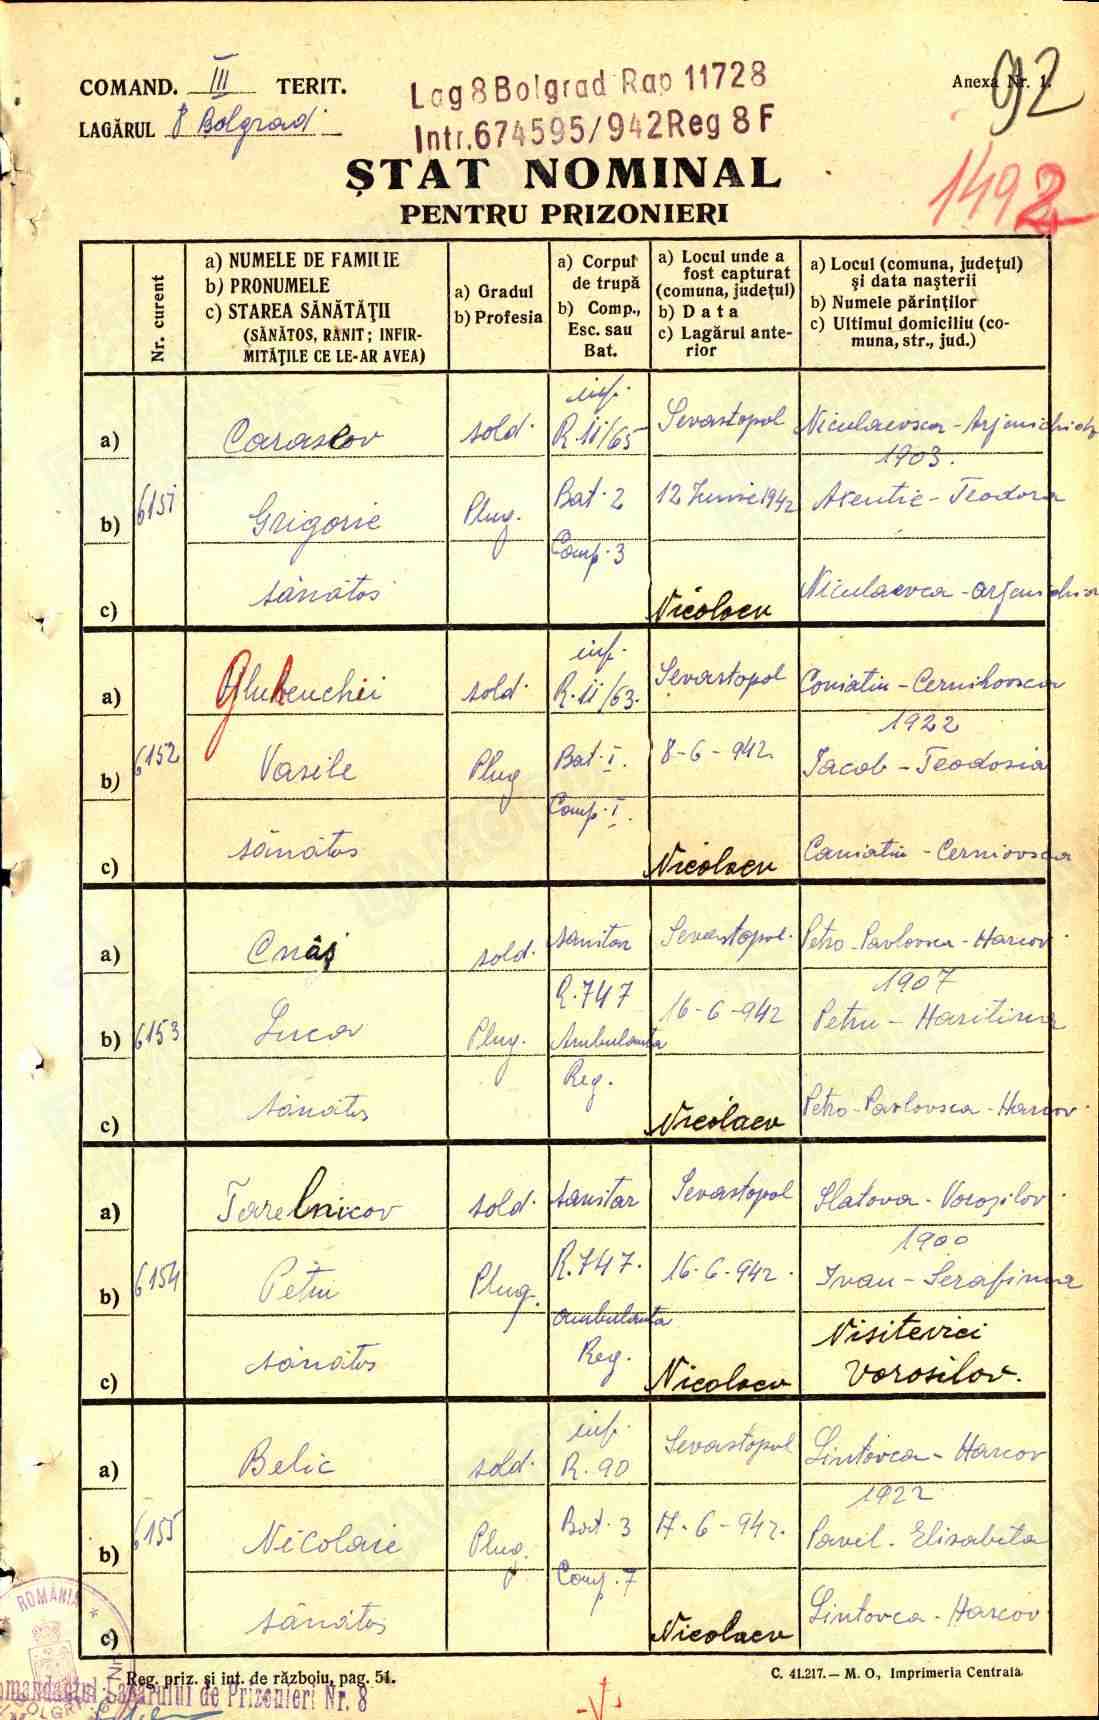 COMAND. III TERIT.
LAGĂRUL 8 Bolgrad
Lag 8 Bolgrad Rap 11728
Intr. 674595/942 Reg 8 F
Anexa Nr. 1.
92
1492
ȘTAT NOMINAL
PENTRU PRIZONIERI
Nr. curent
a) NUMELE DE FAMILIE
b) PRONUMELE
c) STAREA SĂNĂTĂȚII
(SĂNĂTOS, RĂNIT; INFIR-
MITĂȚILE CE LE-AR AVEA)
a) Gradul
b) Profesia
a) Corpul
de trupă
b) Comp.,
Esc. sau
Bat.
a) Locul unde a
fost capturat
(comuna, județul)
b) Data
c) Lagărul ante-
rior
a) Locul (comuna, județul)
și data nașterii
b) Numele părinților
c) Ultimul domiciliu (co-
muna, str., jud.)
6151
a) Caraslov sold. inf. R. II/65 Sevastopol Niculaevsca -
1903.
b) Grigorie Plug. Bat. 2 12 Iunie 1942 Axentie - Teodora
Comp. 3
c) sănătos Nicolaev Niculaevca -
6152
a) sold. inf. R. II/63. Sevastopol Coniatin - Cernihovsca
1922
b) Vasile Plug Bat. I. 8-6-942. Iacob - Teodosia
Comp. I.
c) sănătos Nicolaev Caniatin - Cerniovsca
6153
a) Cnâș sold. sanitar Sevastopol. Petro-Pavlovsca - Harcov
1907
b) Luca Plug. R. 747 16-6-942 Petru - Haritina
Ambulanta
Reg.
c) sănătos Nicolaev Petro-Pavlovsca - Harcov
6154
a) Tarelnicov sold. sanitar Sevastopol Slatova - Voroșilov
1900
b) Petru Plug. R. 747. 16-6-942. Ivan - Serafima
ambulanta
Reg.
c) sănătos Nicolaev Nisitevici
Vorosilov.
6155
a) Belic sold. inf. R. 90 Sevastopol Lintovca - Harcov
1922
b) Nicolaie Plug. Bat. 3 17-6-942. Pavil. Elisabita
Comp. 7
c) sănătos Nicolaev Lintovca - Harcov
Reg. priz. și int. de războiu, pag. 51.
C. 41.217. — M. O., Imprimeria Centrala
ROMÂNIA
Comandantul Lagărului de Prizonieri Nr. 8